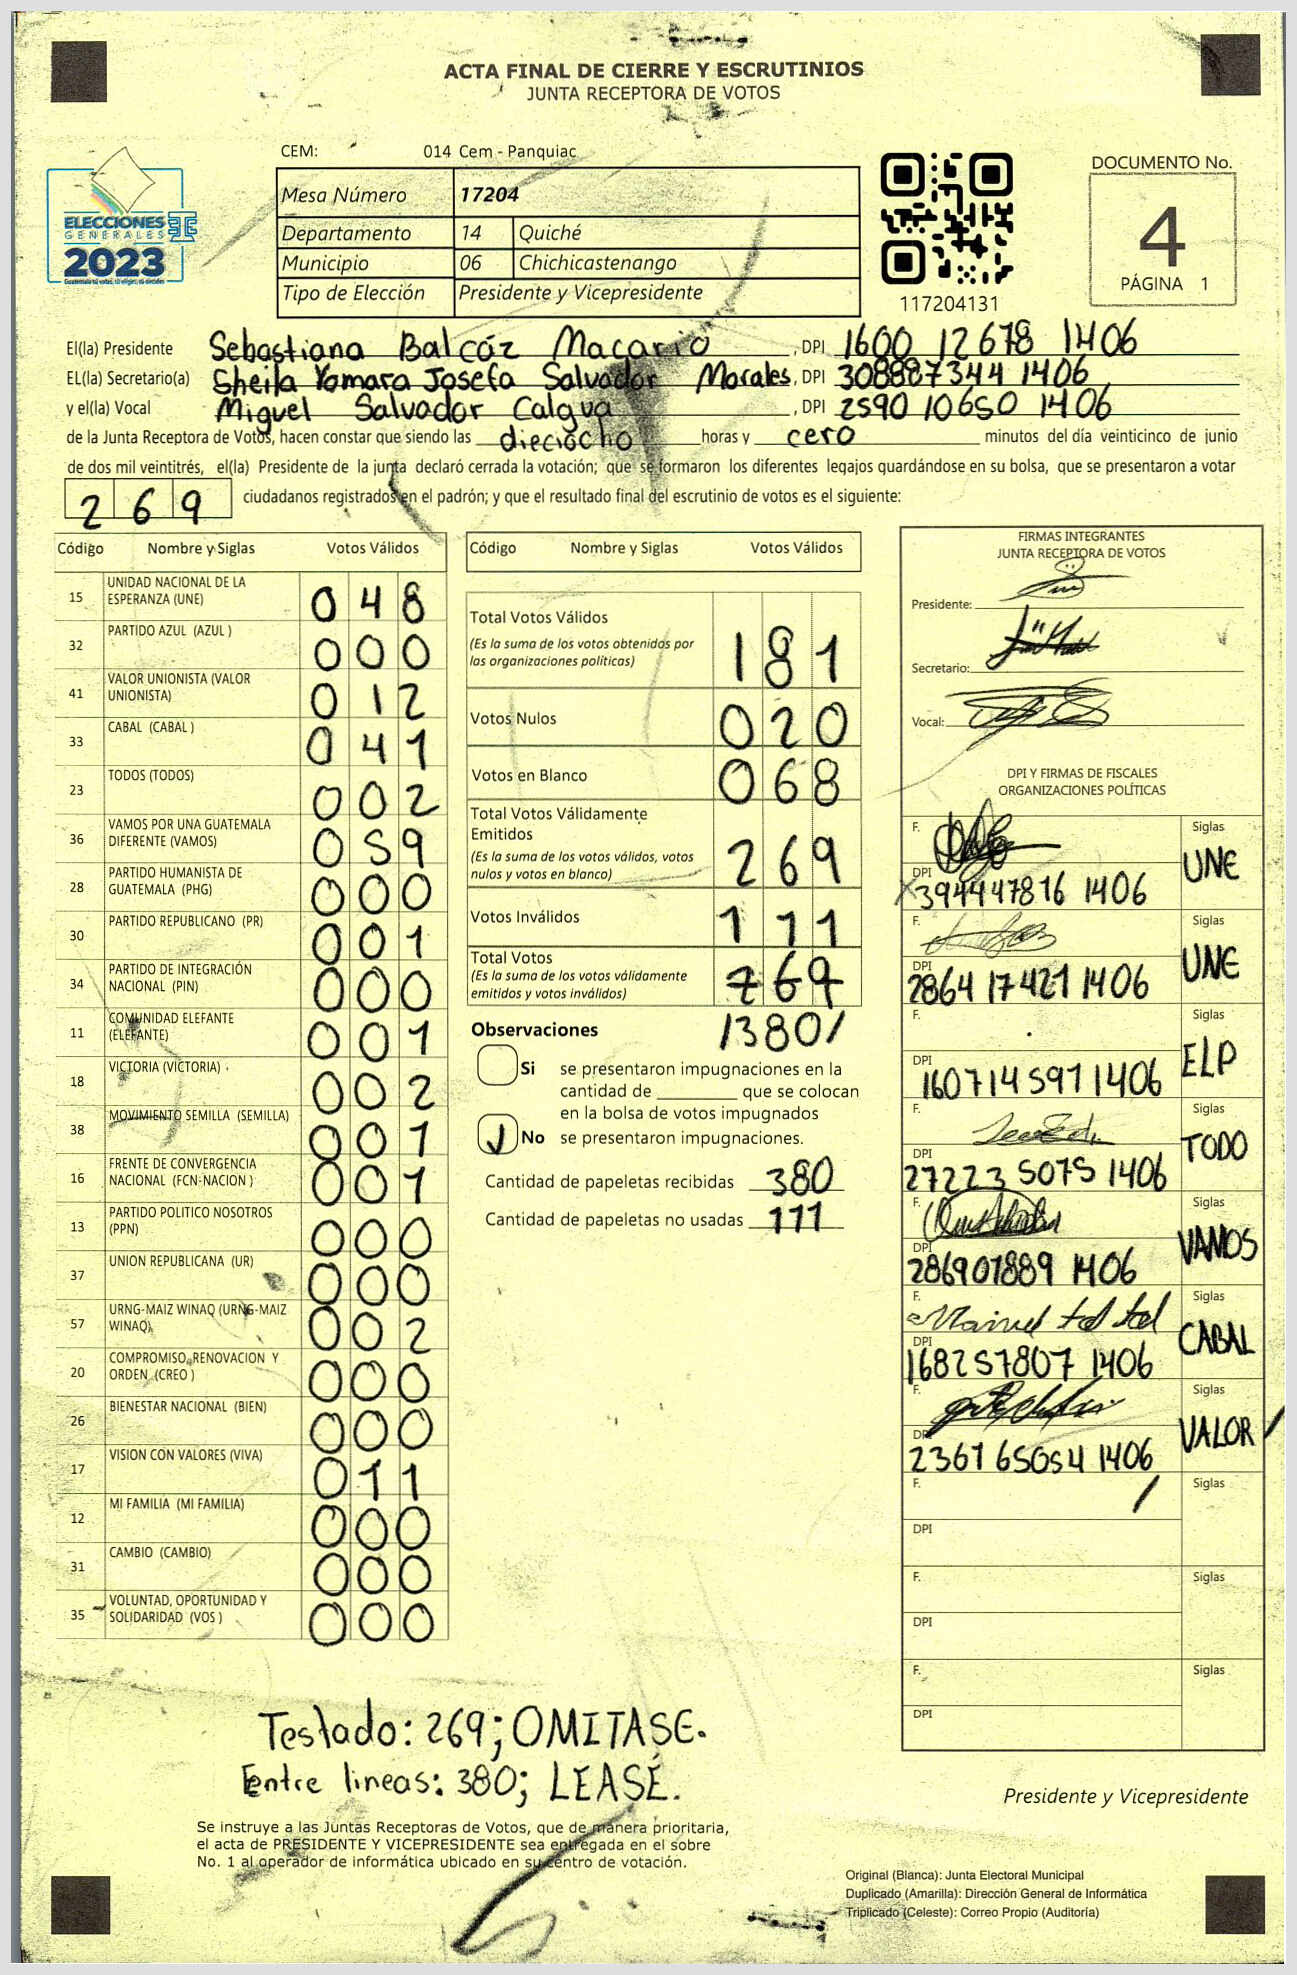 ACTA FINAL DE CIERRE Y ESCRUTINIOS
JUNTA RECEPTORA DE VOTOS
CEM: 014 Cem - Panquiac
ELECCIONES
GENERALES
2023
Mesa Número 17204
Departamento 14 Quiché
Municipio 06 Chichicastenango
Tipo de Elección Presidente y Vicepresidente
117204131
DOCUMENTO No.
4
PÁGINA 1
El(la) Presidente Sebastiana Balcáz Macario, DPI 1600 12678 1406
EL(la) Secretario(a) Sheila Yomara Josefa Salvador Morales, DPI 308887344 1406
y el(la) Vocal Miguel Salvador Calgua, DPI 2590 10650 1406
de la Junta Receptora de Votos, hacen constar que siendo las dieciocho horas y cero minutos del día veinticinco de junio
de dos mil veintitrés, el(la) Presidente de la junta declaró cerrada la votación; que se formaron los diferentes legajos quardándose en su bolsa, que se presentaron a votar
269 ciudadanos registrados en el padrón; y que el resultado final del escrutinio de votos es el siguiente:
Código Nombre y Siglas Votos Válidos
15 UNIDAD NACIONAL DE LA ESPERANZA (UNE) 048
32 PARTIDO AZUL (AZUL ) 000
41 VALOR UNIONISTA (VALOR UNIONISTA) 012
33 CABAL (CABAL ) 041
23 TODOS (TODOS) 002
36 VAMOS POR UNA GUATEMALA DIFERENTE (VAMOS) 059
28 PARTIDO HUMANISTA DE GUATEMALA (PHG) 000
30 PARTIDO REPUBLICANO (PR) 001
34 PARTIDO DE INTEGRACIÓN NACIONAL (PIN) 000
11 COMUNIDAD ELEFANTE (ELEFANTE) 001
18 VICTORIA (VICTORIA) 002
38 MOVIMIENTO SEMILLA (SEMILLA) 001
16 FRENTE DE CONVERGENCIA NACIONAL (FCN-NACION ) 001
13 PARTIDO POLITICO NOSOTROS (PPN) 000
37 UNION REPUBLICANA (UR) 000
57 URNG-MAIZ WINAQ (URNG-MAIZ WINAQ) 002
20 COMPROMISO, RENOVACION Y ORDEN (CREO ) 000
26 BIENESTAR NACIONAL (BIEN) 000
17 VISION CON VALORES (VIVA) 011
12 MI FAMILIA (MI FAMILIA) 000
31 CAMBIO (CAMBIO) 000
35 VOLUNTAD, OPORTUNIDAD Y SOLIDARIDAD (VOS ) 000
Código Nombre y Siglas Votos Válidos
Total Votos Válidos 181
(Es la suma de los votos obtenidos por
las organizaciones políticas)
Votos Nulos 020
Votos en Blanco 068
Total Votos Válidamente
Emitidos 269
(Es la suma de los votos válidos, votos
nulos y votos en blanco)
Votos Inválidos 111
Total Votos 269
(Es la suma de los votos válidamente
emitidos y votos inválidos)
Observaciones /380/
Si se presentaron impugnaciones en la
cantidad de ________ que se colocan
en la bolsa de votos impugnados
No se presentaron impugnaciones.
Cantidad de papeletas recibidas 380
Cantidad de papeletas no usadas 111
FIRMAS INTEGRANTES
JUNTA RECEPTORA DE VOTOS
Presidente:
Secretario:
Vocal:
DPI Y FIRMAS DE FISCALES
ORGANIZACIONES POLÍTICAS
F. Siglas UNE
DPI 394447816 1406
F. Siglas UNE
DPI 2864 17421 1406
F. Siglas ELP
DPI 160714597 1406
F. Siglas TODO
DPI 27223 5075 1406
F. Siglas VAMOS
DPI 286901889 1406
F. Siglas CABAL
DPI 168257807 1406
F. Siglas VALOR
DPI 2361 65054 1406
F. Siglas
DPI
F. Siglas
DPI
F. Siglas
DPI
Testado: 269; OMITASE.
Entre lineas: 380; LEASE.
Presidente y Vicepresidente
Se instruye a las Juntas Receptoras de Votos, que de manera prioritaria,
el acta de PRESIDENTE Y VICEPRESIDENTE sea entregada en el sobre
No. 1 al operador de informática ubicado en su centro de votación.
Original (Blanca): Junta Electoral Municipal
Duplicado (Amarilla): Dirección General de Informática
Triplicado (Celeste): Correo Propio (Auditoría)